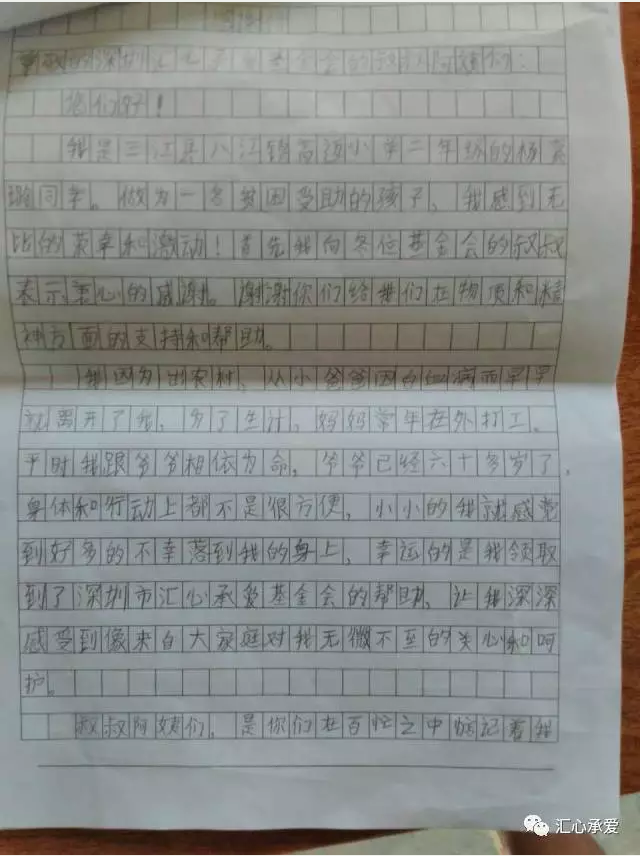 尊敬的深圳汇心承爱基金会的叔叔阿姨们:
您们好!
我是三江县八江镇高迈小学二年级的杨
同学。做为一名贫困受助的孩子,我感到无
比的荣幸和激动!首先我向各位基金会的叔叔
表示衷心的感谢。谢谢你们给我们在物质和精
神方面的支持和帮助。
我因为出农村,从小爸爸因白血病而早早
就离开了我,为了生计,妈妈常年在外打工。
平时我跟爷爷相依为命,爷爷已经六十多岁了,
身体和行动上都不是很方便,小小的我就感觉
到好多的不幸落到我的身上,幸运的是我领取
到了深圳市汇心承爱基金会的帮助,让我深深
感受到像来自大家庭对我无微不至的关心和呵
护。
叔叔阿姨们,是你们在百忙之中惦记着我
汇心承爱